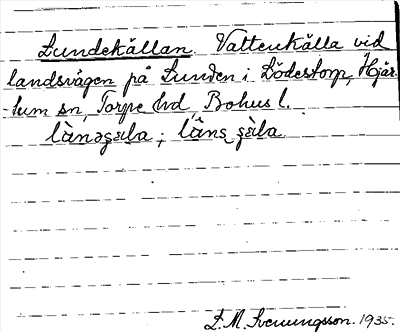 Lundekällan. Vattenkälla vid
landsvägen på Lunden i Lödestorp, Hjär-
tum sn, Torpe hd, Bohus l.
S. M. Svenungsson. 1935.